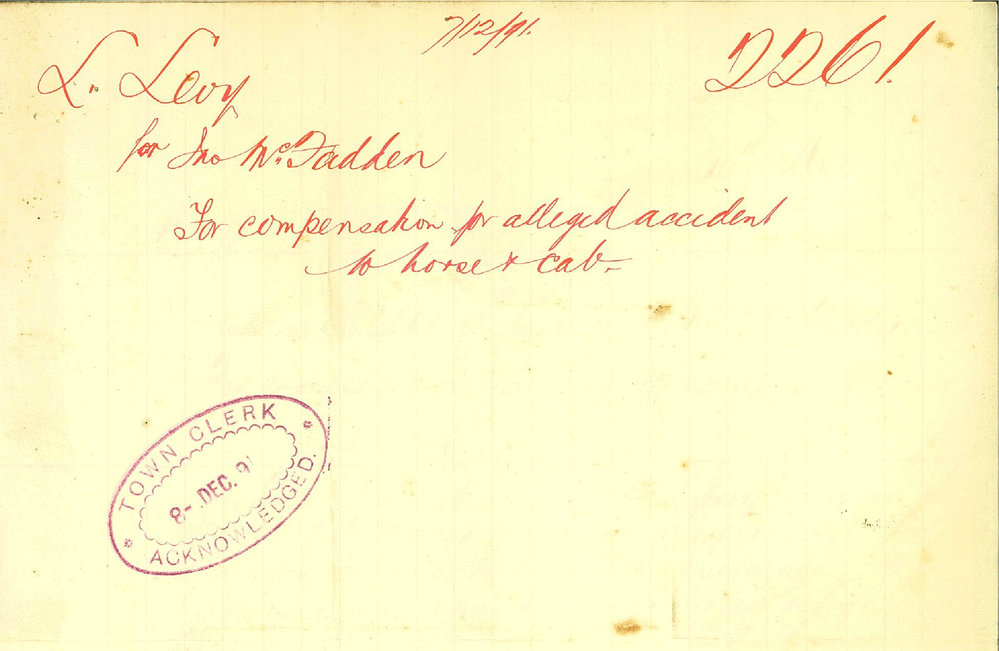 7/12/91.
2261.
L. Levy
for Jno McFadden
For compensation for alleged accident
to horse & cab.
TOWN CLERK
8- DEC. 91
ACKNOWLEDGED.